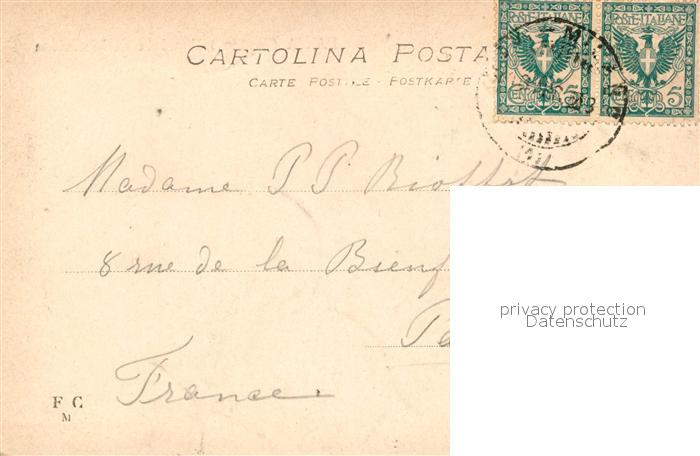 POSTE·ITALIANE POSTE·ITALIANE
CENT 5 CENT 5
CARTOLINA POSTA
CARTE POSTALE - POSTKARTE
Madame P P
8 rue de la Bienf
France
privacy protection
Datenschutz
F C
M